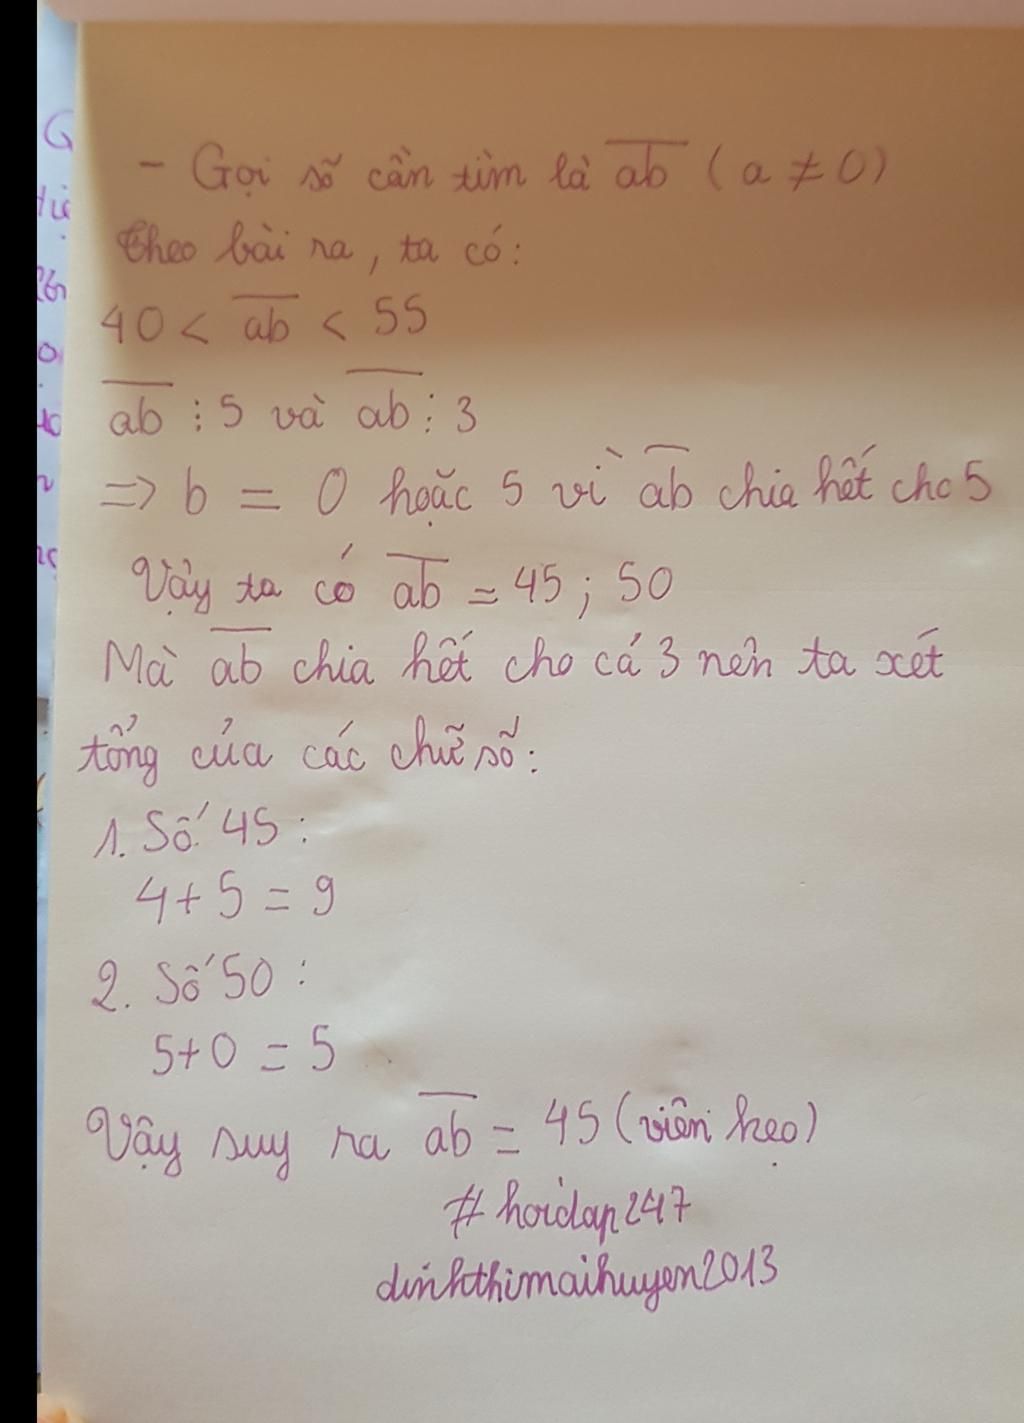 - Gọi số cần tìm là ab (a ≠ 0)
Theo bài ra, ta có:
40 < ab < 55
ab ⋮ 5 và ab ⋮ 3
=> b = 0 hoặc 5 vì ab chia hết cho 5
Vậy ta có ab = 45 ; 50
Mà ab chia hết cho cả 3 nên ta xét
tổng của các chữ số:
1. Số 45 :
4 + 5 = 9
2. Số 50 :
5 + 0 = 5
Vậy suy ra ab = 45 (viên kẹo)
# hoidap247
dinhthimaihuyen2013